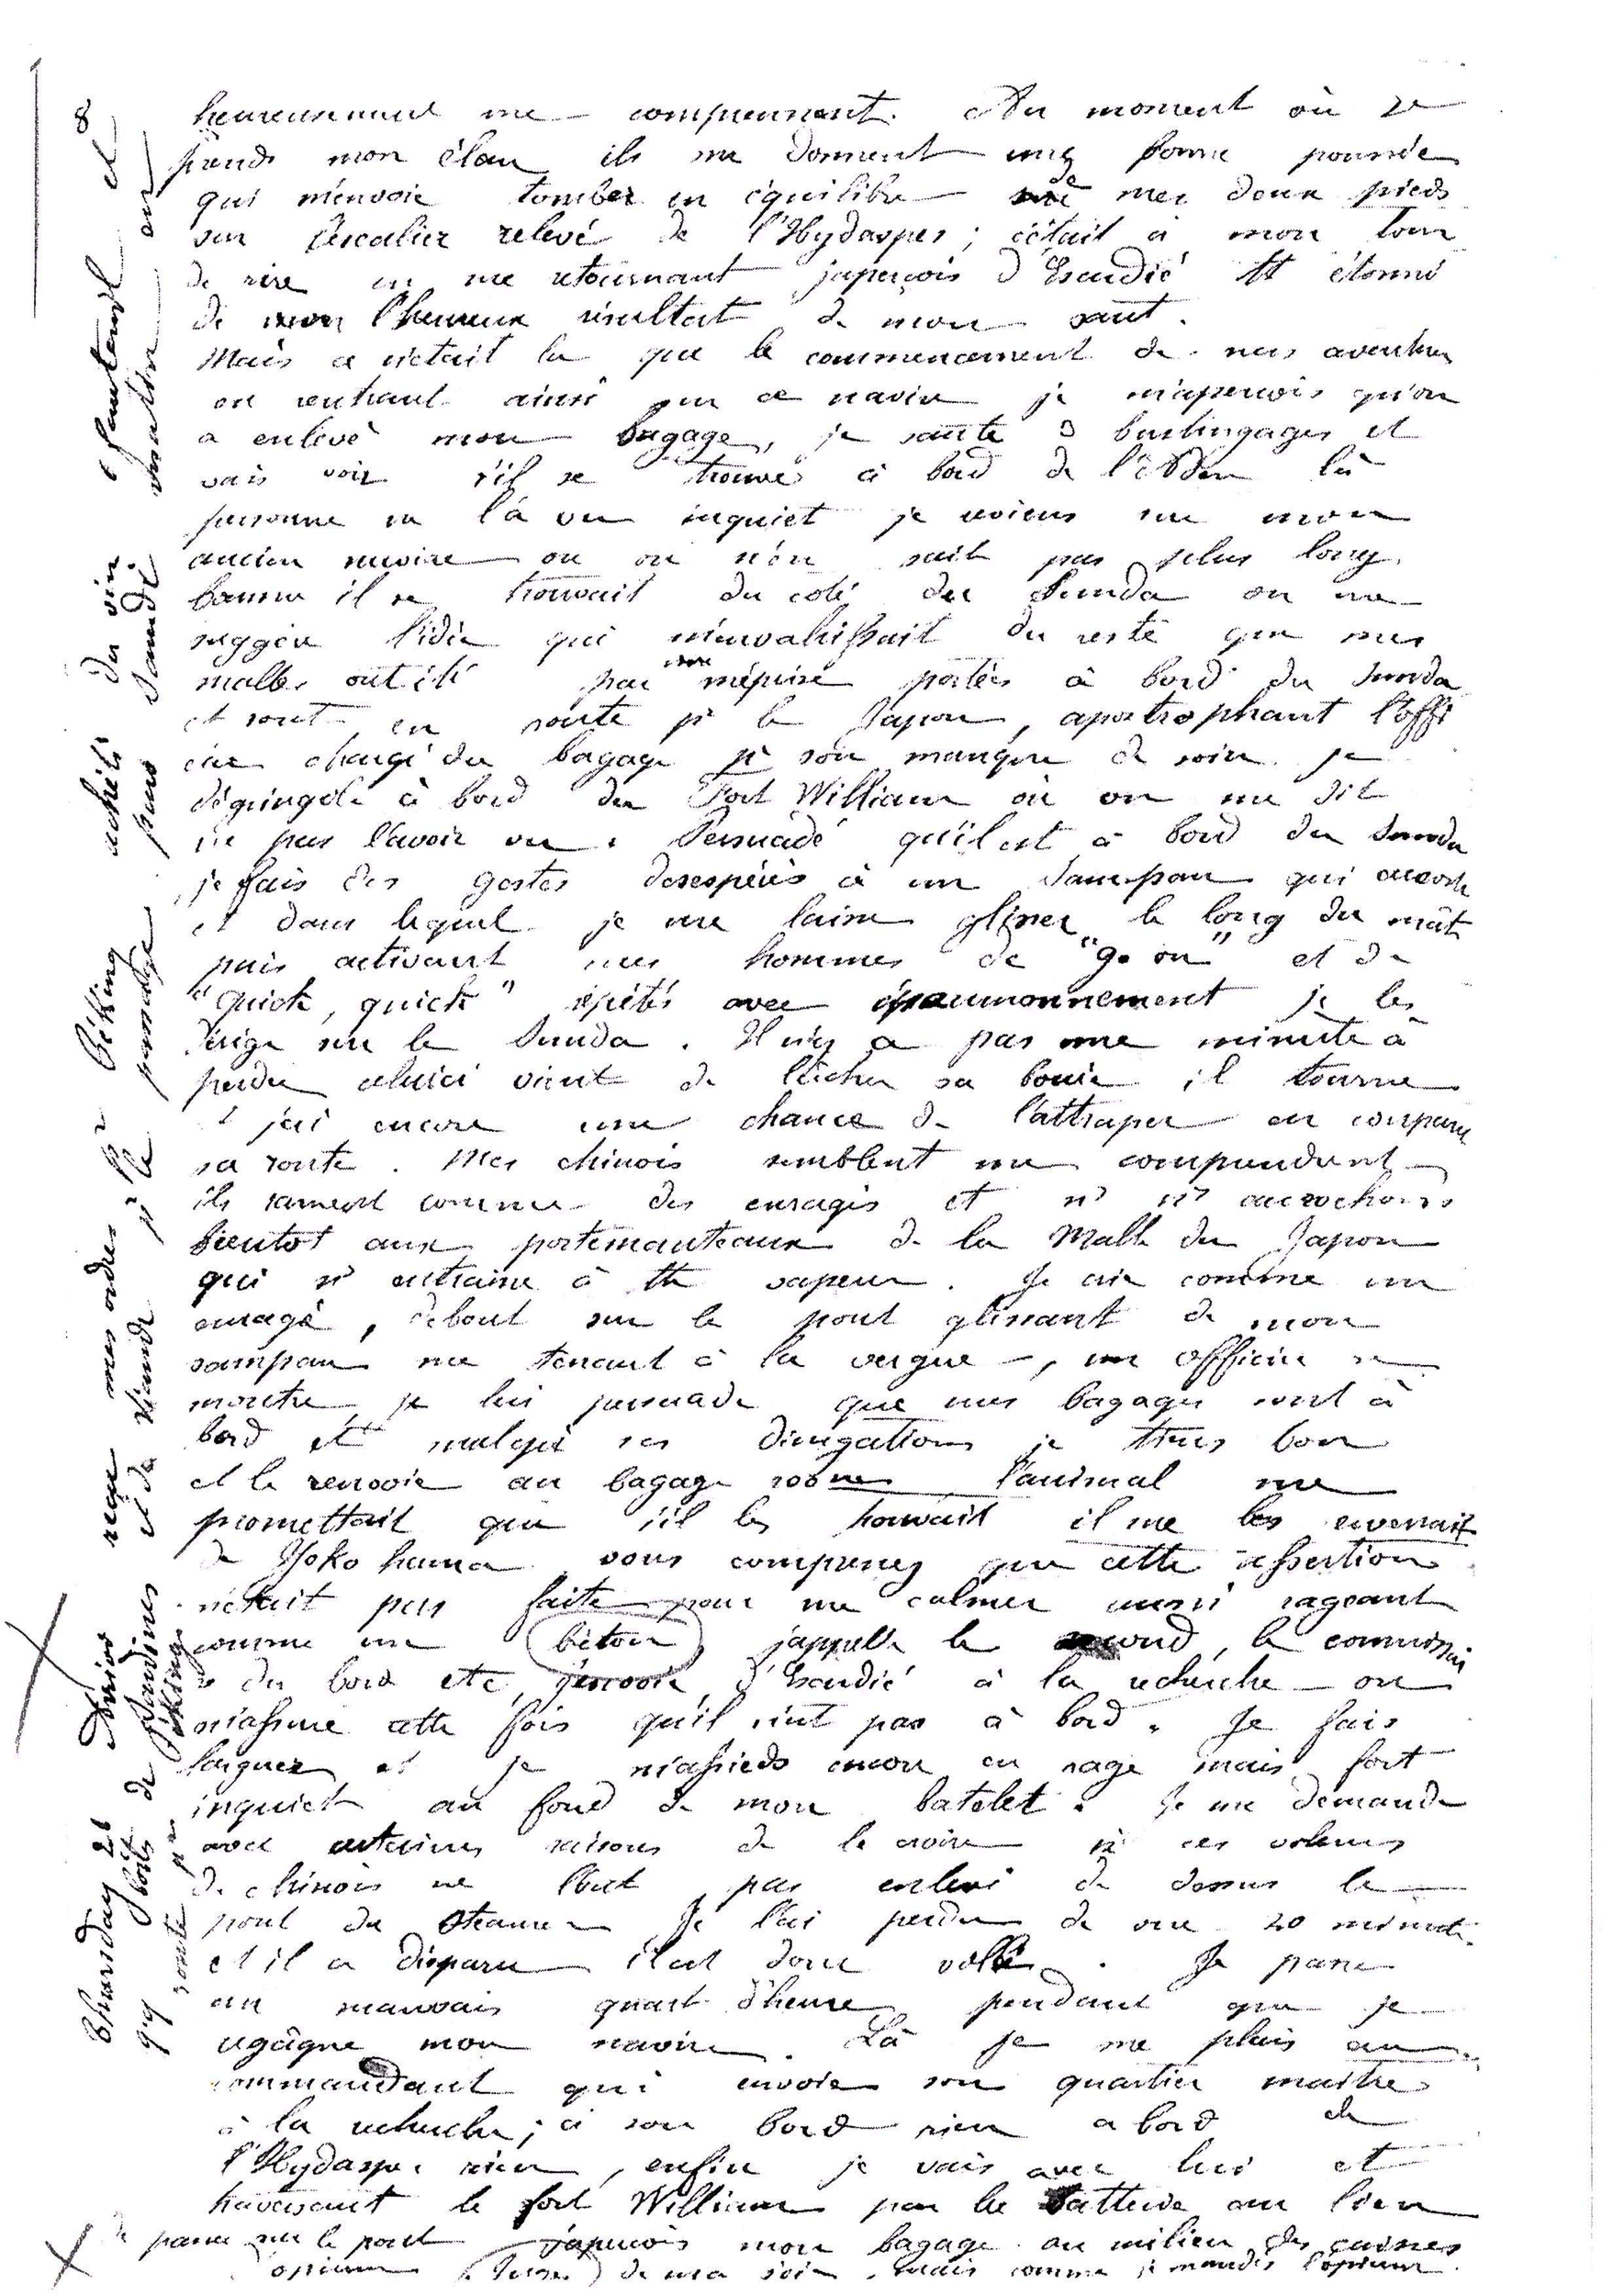 8
heureusement me comprennent. Au moment où je
prends mon élan ils me donnent une bonne poussée
qui m'envoie tomber en équilibre de mes deux pieds
sur l'escalier relevé de l'Hydaspes ; c'était à mon tour
de rire en me retournant j'aperçois d'Escudié tt étonné
de l'heureux résultat de mon saut.
Mais ce n'était la que le commencement de nos aventures
en rentrant ainsi sur ce navire je m'aperçois qu'on
a enlevé mon bagage, je saute 3 bastingages et
vais voir s'il se trouve à bord de l'Aden là
personne ne l'a vu inquiet je reviens sur mon
ancien navire ou on n'en sait pas plus long.
Comme il se trouvait du coté du Sunda on me
suggère l'idée qui m'envahissait du reste que mes
malles ont été par méprise portées à bord du Sunda
et sont en route pr le Japon, apostrophant l'offi
cier chargé du bagage pr son manque de soin je
dégringole à bord du Fort William où on me dit
ne pas l'avoir vu. Persuadé qu'il est à bord du Sunda
je fais des gestes desespérés à un Sampan qui accoste
et dans lequel je me laisse glisser le long du mât
puis activant mes hommes de "go on" et de
"quick, quick" répétés avec époumonnement je les
dirige sur le Sunda. Il n'y a pas une minute à
perdre celuici vient de lâcher sa bouée il tourne
et j'ai encore une chance de l'attraper en coupant
sa route. Mes chinois semblent me comprendre
ils rament comme des enragés et ns ns accrochons
bientot aux portemanteaux de la Malle du Japon
qui ns entraine à tte vapeur. Je crie comme un
enragé, debout sur le pont glissant de mon
sampan me tenant à la vergue, un officier se
montre je lui persuade que mes bagages sont à
bord et malgré ses divagations je tiens bon
et le renvoie au bagage room l'animal me
promettait que s'il les trouvait il me les enverrait
de Yokohama vous comprenez que cette assertion
n'était pas faite pour me calmer aussi rageant
comme un bèton j'appelle le second, le commissai
re du bord etc j'envoie d'Escudié à la recherche on
m'assure cette fois qu'il n'est pas à bord. Je fais
larguer et je m'assieds encore en rage mais fort
inquiet au fond de mon batelet. Je me demande
avec certaines raisons de le croire si ces voleurs
de chinois ne l'ont pas enlevé de dessus le
pont du Steamer. Je l'ai perdu de vue 20 minutes
et il a disparu il est donc volé. Je passe
un mauvais quart d'heure pendant que je
regagne mon navire. Là je me plains au
commandant qui envoie son quartier maitre
à la recherche ; à son bord rien a bord de
l'Hydaspes rien, enfin je vais avec lui et
traversant le fort William par la batterie au lieu
de passer sur le pont j'aperçois mon bagage au milieu des caisses
opium de ma soie. Mais comme je l'opium.
Thursday 21 Junior reçu mes ordres pr Péking acheté du vin. et
97 boites de Sardines et de viande pr le pendage pues Samdé
route pr Péking.